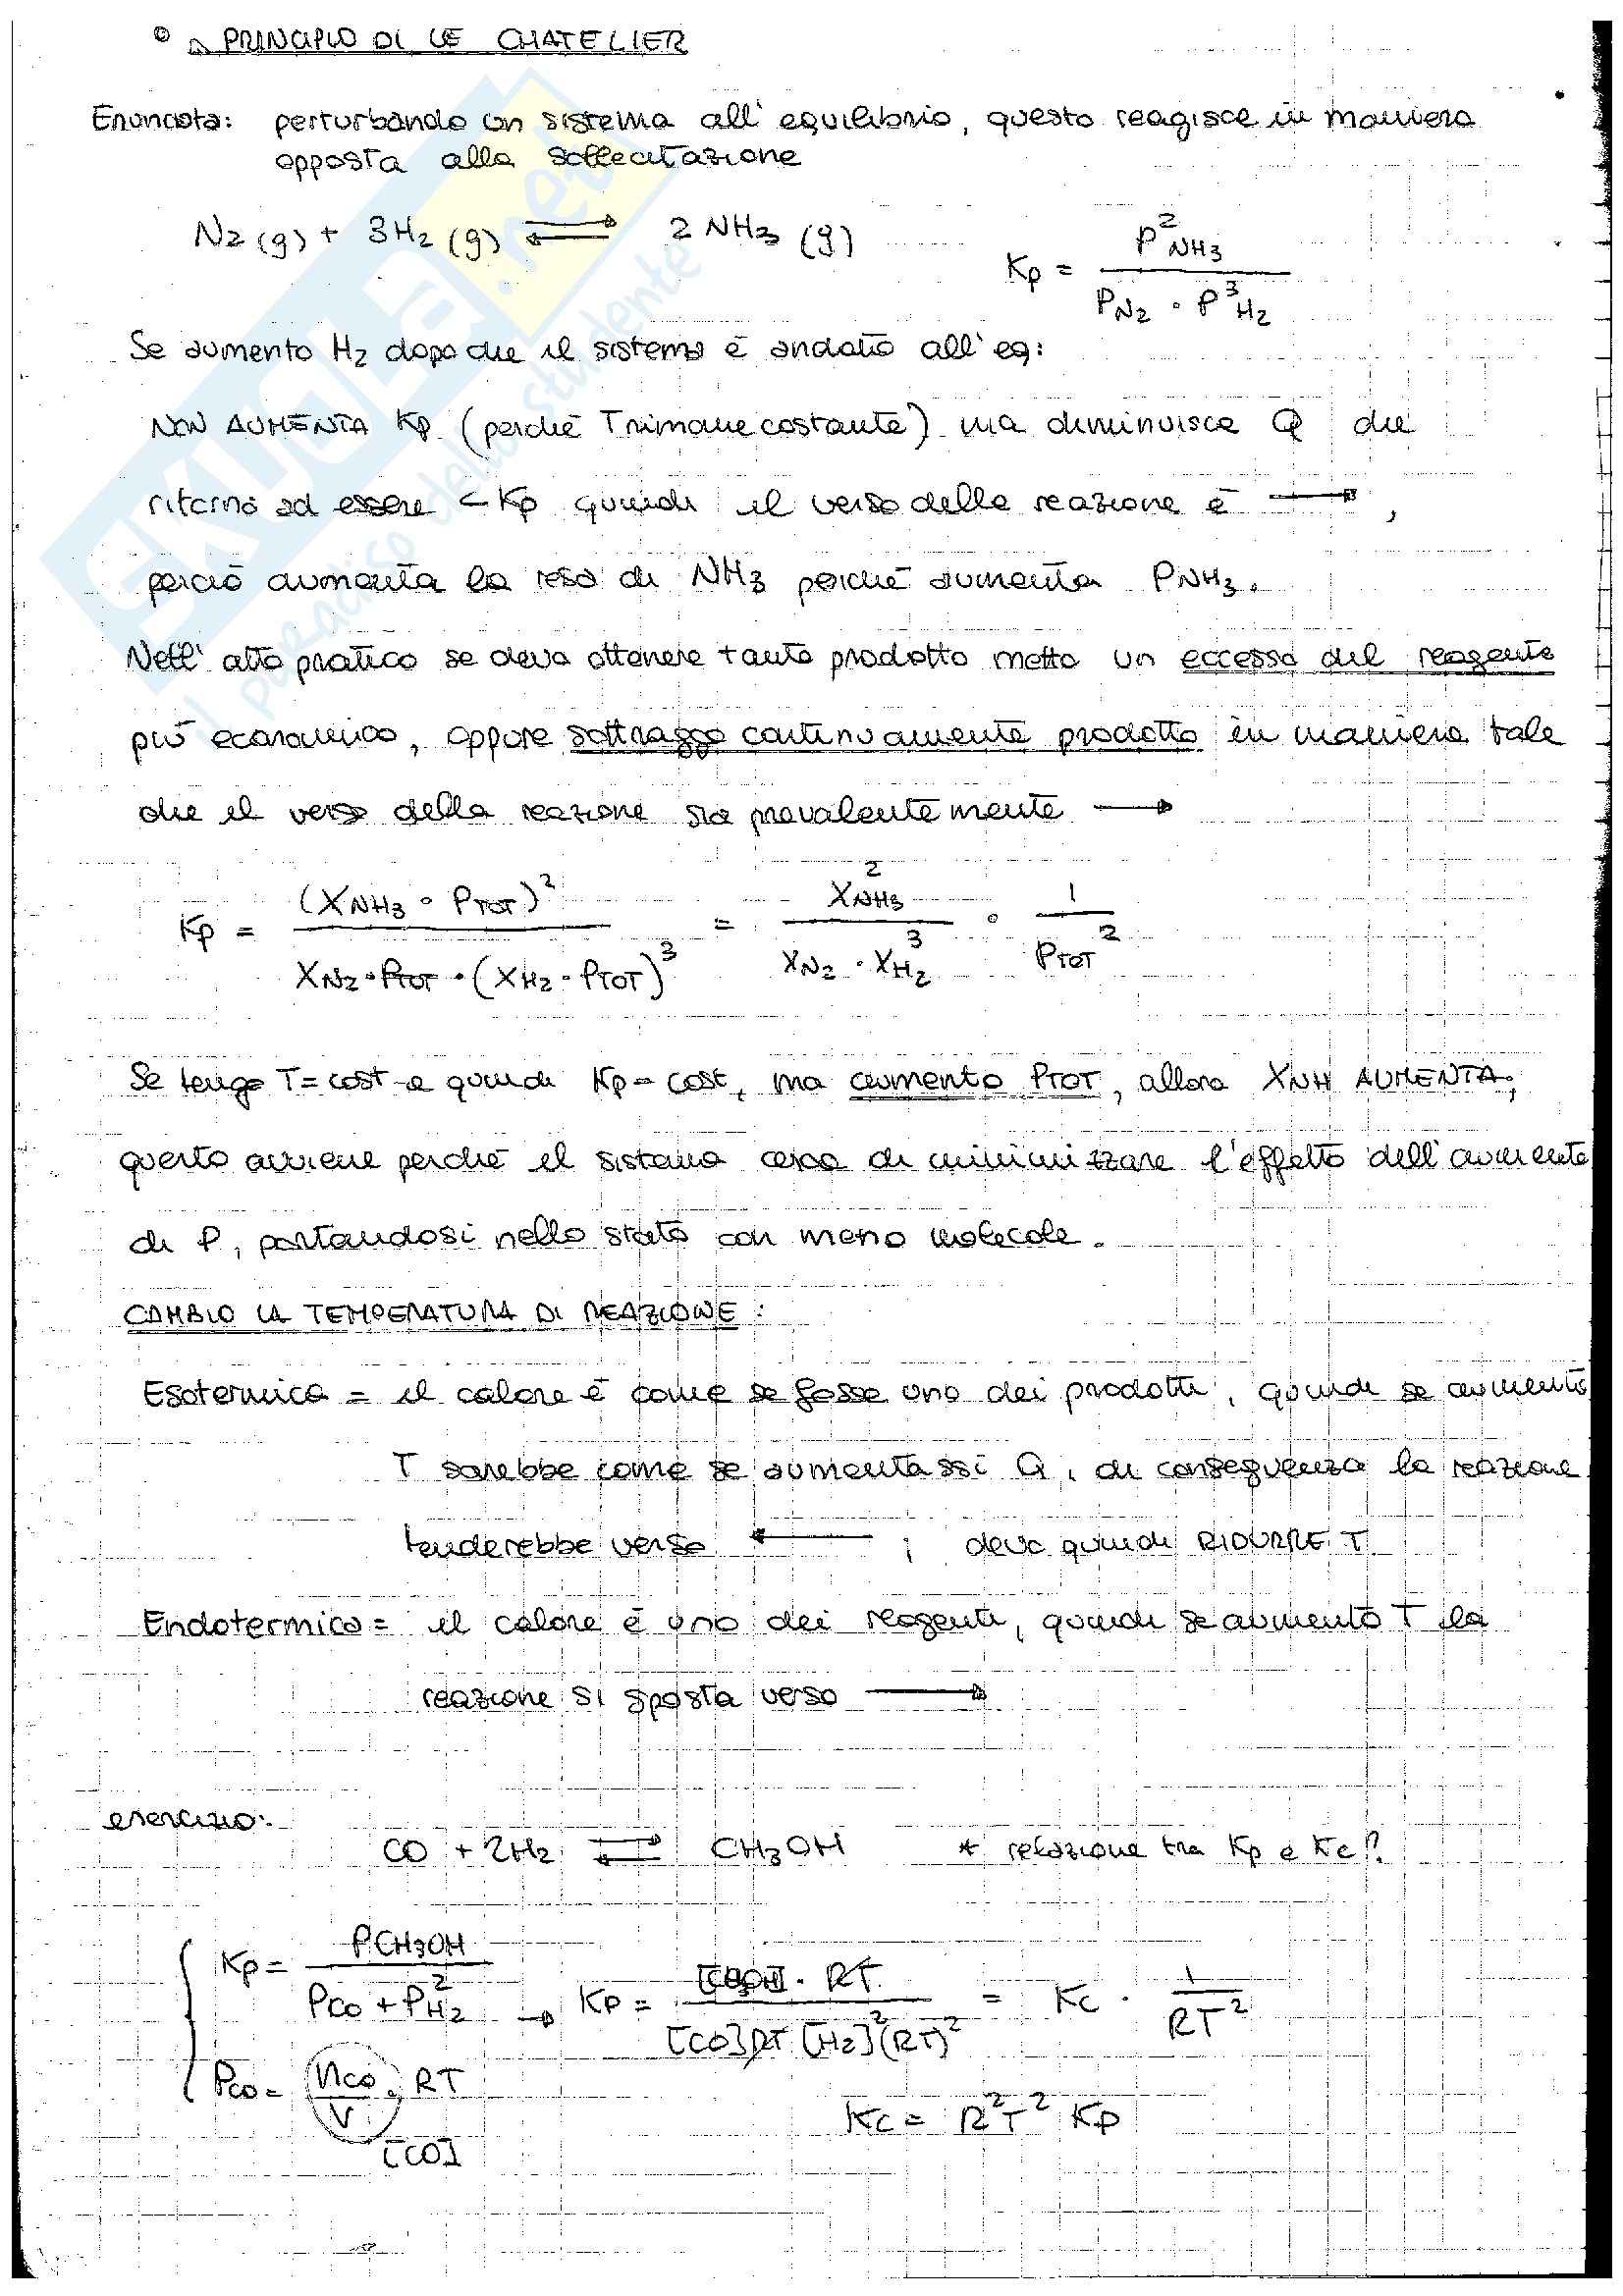 © PRINCIPIO DI LE CHATELIER
Enunciato: perturbando un sistema all'equilibrio, questo reagisce in maniera
opposta alla sollecitazione
N2 (g) + 3H2 (g) ⇌ 2 NH3 (g)
Kp = P²NH3 / PN2 · P³H2
Se aumento H2 dopo che il sistema è andato all'eq:
NON AUMENTA Kp (perché T rimane costante) ma diminuisce Q che
ritorna ad essere < Kp quindi il verso della reazione è →,
perciò aumenta la resa di NH3 perché aumenta PNH3.
Nell'atto pratico se devo ottenere tanto prodotto metto un eccesso del reagente
più economico, oppure sottraggo continuamente prodotto in maniera tale
che il verso della reazione sia prevalentemente →
Kp = (XNH3 · PTOT)² / XN2 · PTOT · (XH2 · PTOT)³ = X²NH3 / XN2 · X³H2 · 1 / PTOT²
Se tengo T = cost e quindi Kp = cost, ma aumento PTOT, allora XNH AUMENTA;
questo avviene perché il sistema cerca di minimizzare l'effetto dell'aumento
di P, portandosi nello stato con meno molecole.
CAMBIO LA TEMPERATURA DI REAZIONE:
Esotermica = il calore è come se fosse uno dei prodotti, quindi se aumento
T sarebbe come se aumentassi Q, di conseguenza la reazione
tenderebbe verso ← ; devo quindi RIDURRE T
Endotermica = il calore è uno dei reagenti, quindi se aumento T la
reazione si sposta verso →
esercizio:
CO + 2H2 ⇌ CH3OH * relazione tra Kp e Kc?
Kp = PCH3OH / PCO + P²H2 → Kp = [CH3OH] · RT / [CO]RT [H2]²(RT)² = Kc · 1 / RT²
PCO = nCO / V · RT
[CO]
Kc = R²T² Kp
il paradiso dello studente